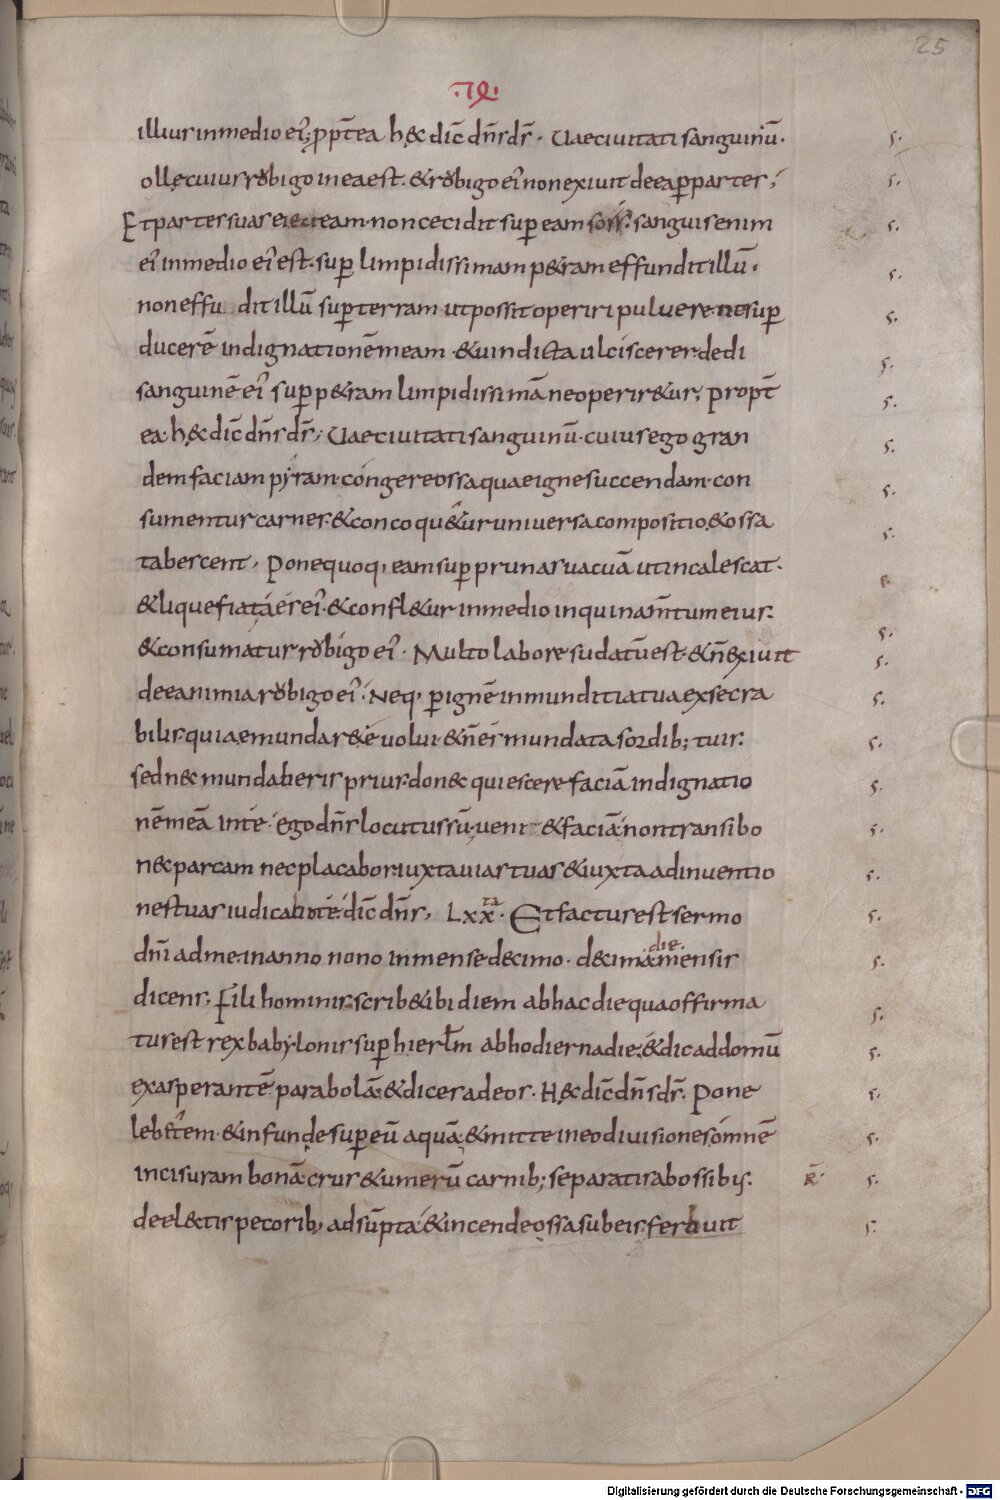 25
illius inmedio ei᷒; ꝓpt̄ea hęc dic̄ dn̄s ds̄. Uae ciuitati sanguinū.
ollę cuius rubigo in ea est. & rubigo ei᷒ non exiuit de ea ꝑ partes;
Et partes suas eiecit eam. non cecidit suꝑ eam sors. sanguis enim
ei᷒ inmedio ei᷒ est. suꝑ limpidissimam p&ram effundit illū.
non effu dit illū suꝑ terram ut possit operiri puluere. ut suꝑ
ducerē indignationē meam & uindicta ulciscerer. dedi
sanguinē ei᷒ suꝑ p&ram limpidissimā ne operir&ur; Propt̄
ea. hęc dic̄ dn̄s ds̄; Uae ciuitati sanguinū. cuius ego gran
dem faciam pyram. congere ossa quae igne succendam. con
sumentur carnes. & concoqu&ur uniuersa compositio. & ossa
tabescent. Pone quoq; eam suꝑ prunas uacuā ut incalescat.
& liquefiat aes ei᷒. & confl&ur inmedio inquinam̄tum eius.
& consumatur rubigo ei᷒. Multo labore sudatū est. & n̄ exiuit
de ea nimia rubigo ei᷒. Neq; ꝑ ignē inmunditia tua exsecra
bilis. quia emundare te uolui. & n̄ es mundata sordib; tuis.
sed nec mundaberis prius. donec quiescere faciā indignatio
nē meā in te. ego dn̄s locutus sū. ueni & faciā. non transibo
nec parcam nec placabor. iuxta uias tuas & iuxta adinuentio
nes tuas iudicabo te. dic̄ dn̄s; Lxx ta. Et factus est sermo
dn̄i ad me. in anno nono in mense decimo. decima die mensis
dicens; Fili hominis. scribe tibi diem ab hac die qua offirma
tus est rex babylonis suꝑ hierlm̄ ab hodierna die. & dic ad domū
exasperantē parabolā. & dices ad eos. Hęc dic̄ dn̄s ds̄. Pone
lebetem. & infunde super eū aquā. & mitte in eo diuisiones. omnē
incisuram bonā. crus & umerū carnib; separatis ab ossibus.
de electis pecorib; adsūpta. & incende ossa sub eis. ferbuit
Digitalisierung gefördert durch die Deutsche Forschungsgemeinschaft - DFG